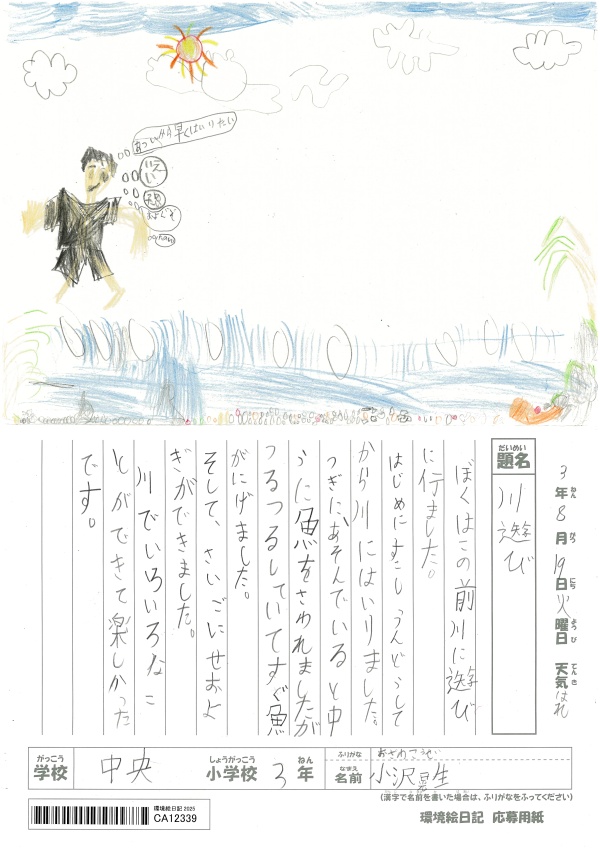 あついから早くはいりたい
3年8月19日火曜日 天気はれ
ねん がつ にち ようび てんき
だいめい
題名
川遊び
ぼくはこの前川に遊び
に行ました。
はじめにすこしうんどうして
から川にはいりました。
つぎに、あそんでいると中
らに魚をさわれましたが
つるつるしていてすぐ魚
がにげました。
そして、さいごにせおよ
ぎができました。
川でいろいろなこ
とができて楽しかった
です。
がっこう しょうがっこう ねん
学校 中央 小学校 3年
ふりがな おざわこうせい
なまえ
名前 小沢 生
(漢字で名前を書いた場合は、ふりがなをふってください)
環境絵日記 2025
CA12339
環境絵日記 応募用紙